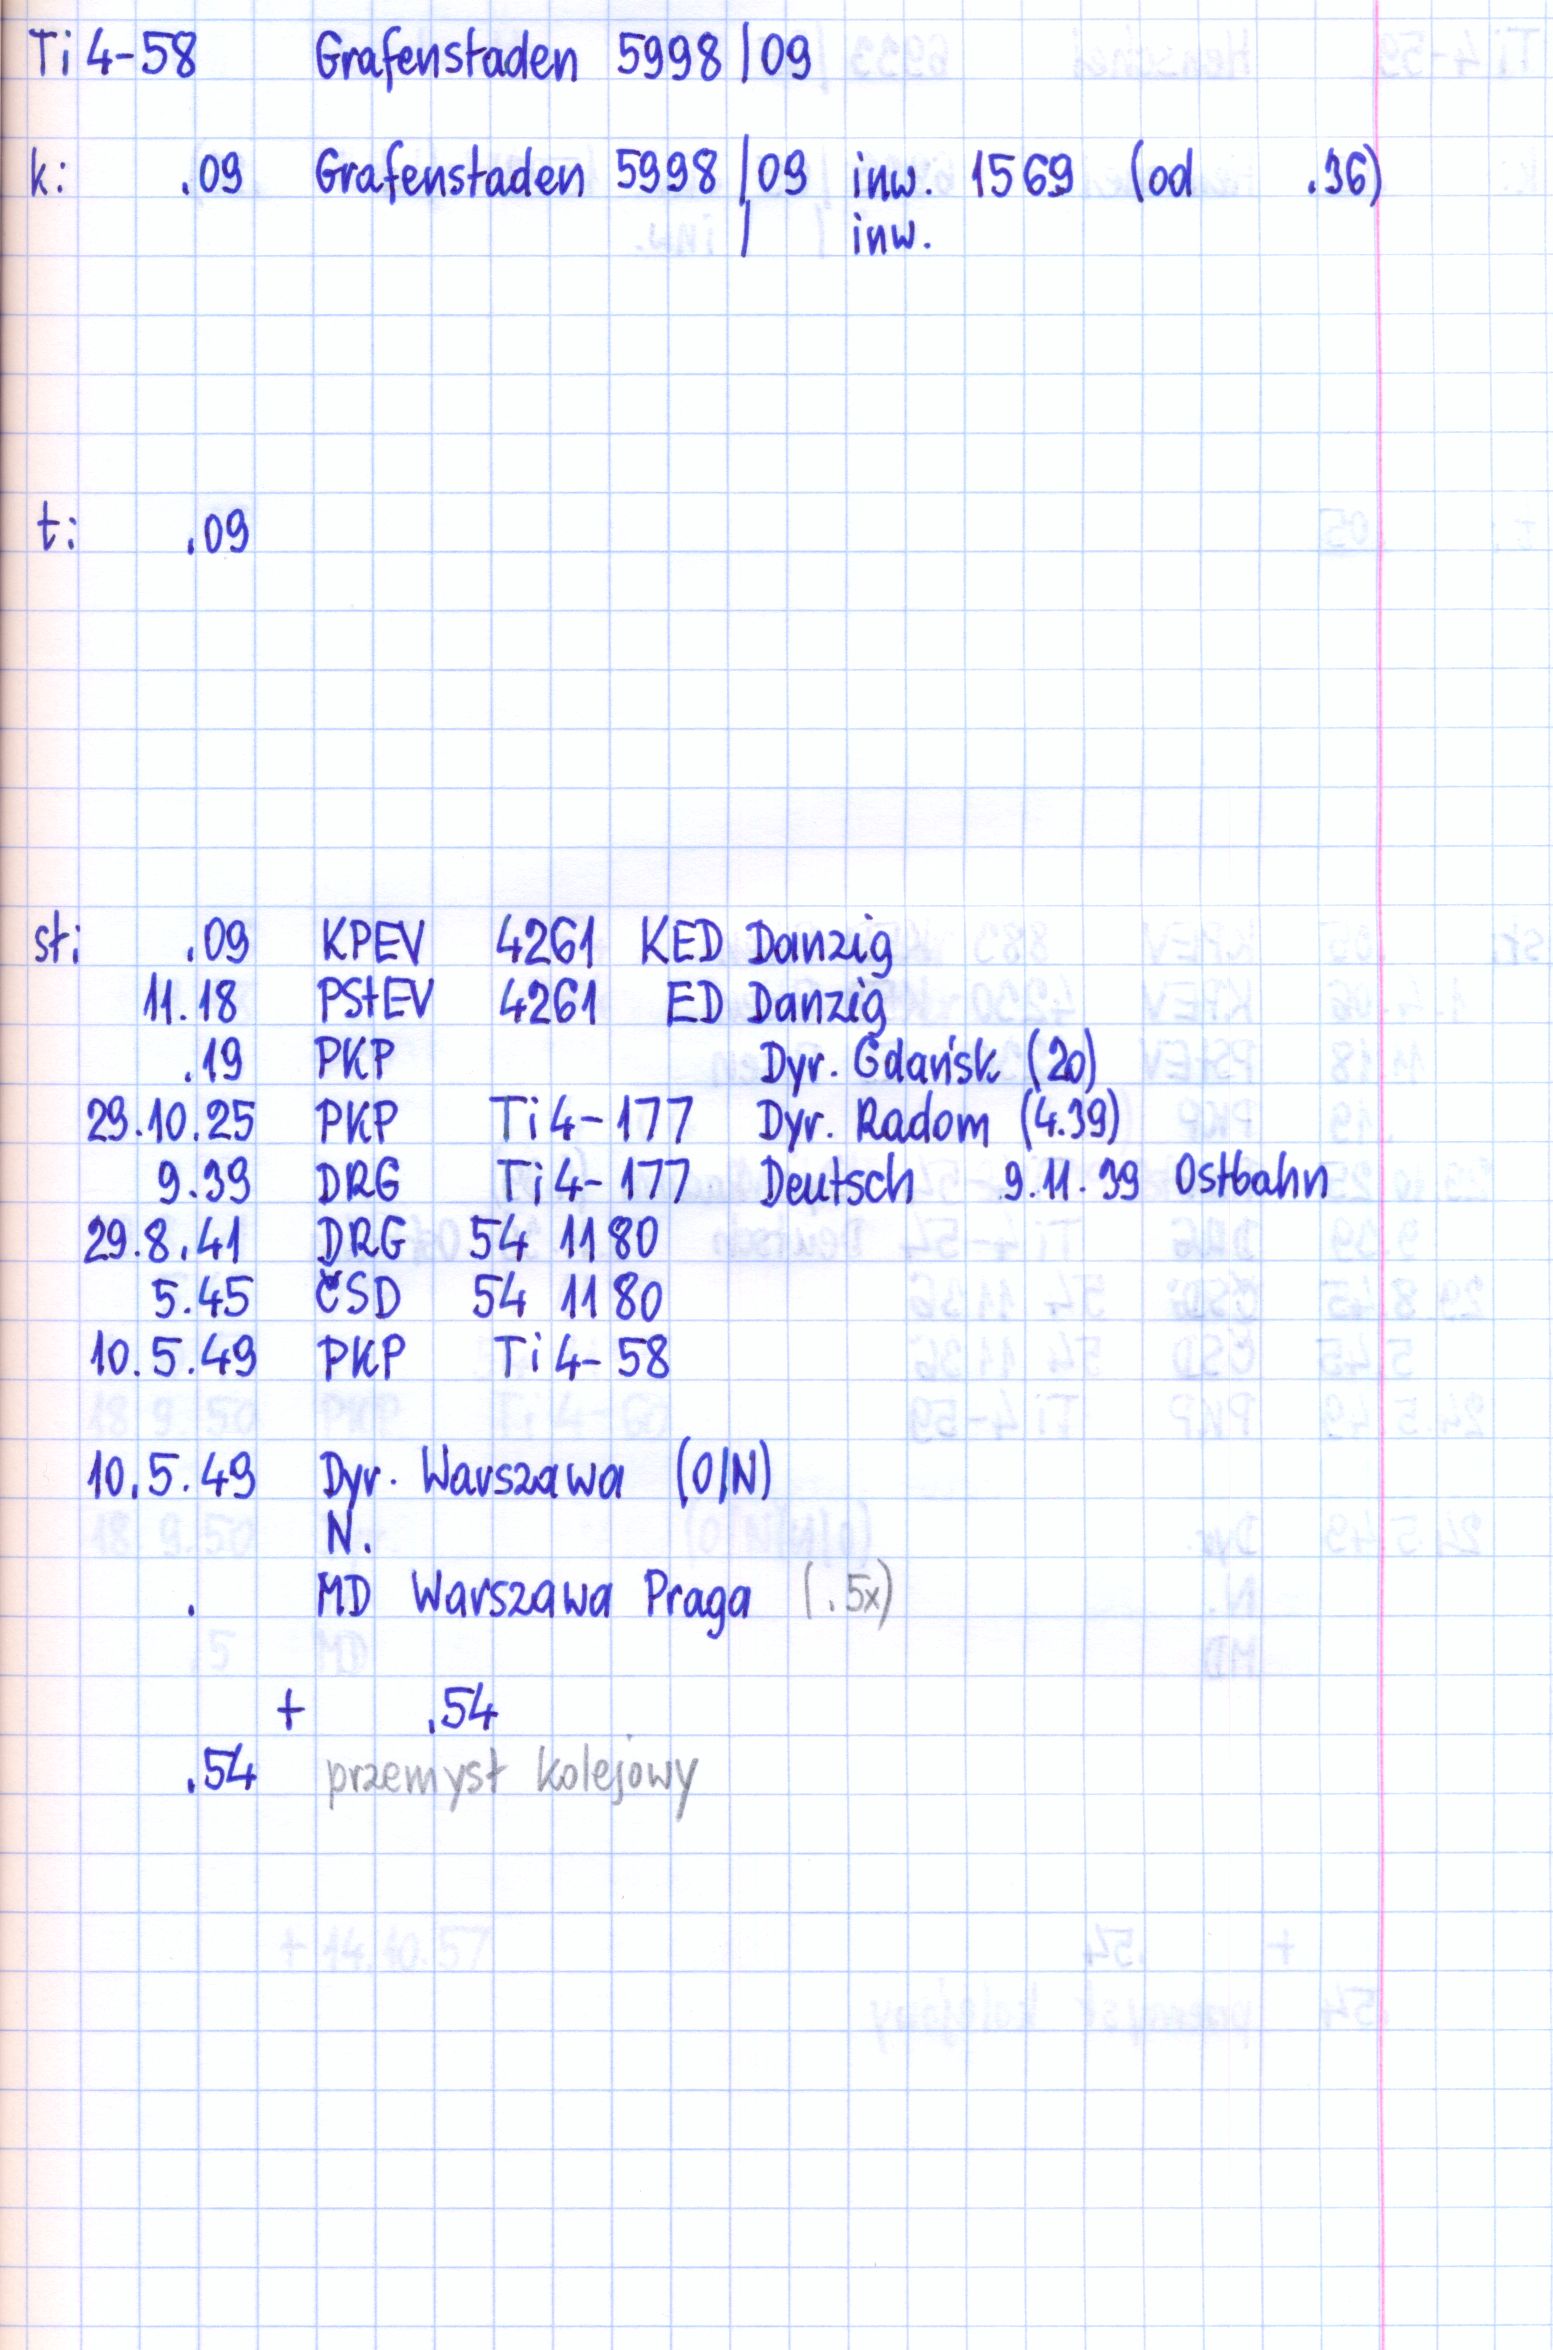 Ti 4-58 Grafenstaden 5998/09
k: .09 Grafenstaden 5998/09 inw. 1569 (od .36)
/ inw.
t: .09
st: .09 KPEV 4261 KED Danzig
11.18 PStEV 4261 ED Danzig
.19 PKP Dyr. Gdańsk (20)
29.10.25 PKP Ti 4-177 Dyr. Radom (4.39)
9.39 DRG Ti 4-177 Deutsch 9.11.39 Ostbahn
29.8.41 DRG 54 1180
5.45 ČSD 54 1180
10.5.49 PKP Ti 4-58
10.5.49 Dyr. Warszawa (O/N)
N.
. MD Warszawa Praga (.5x)
+ .54
.54 przemysł kolejowy